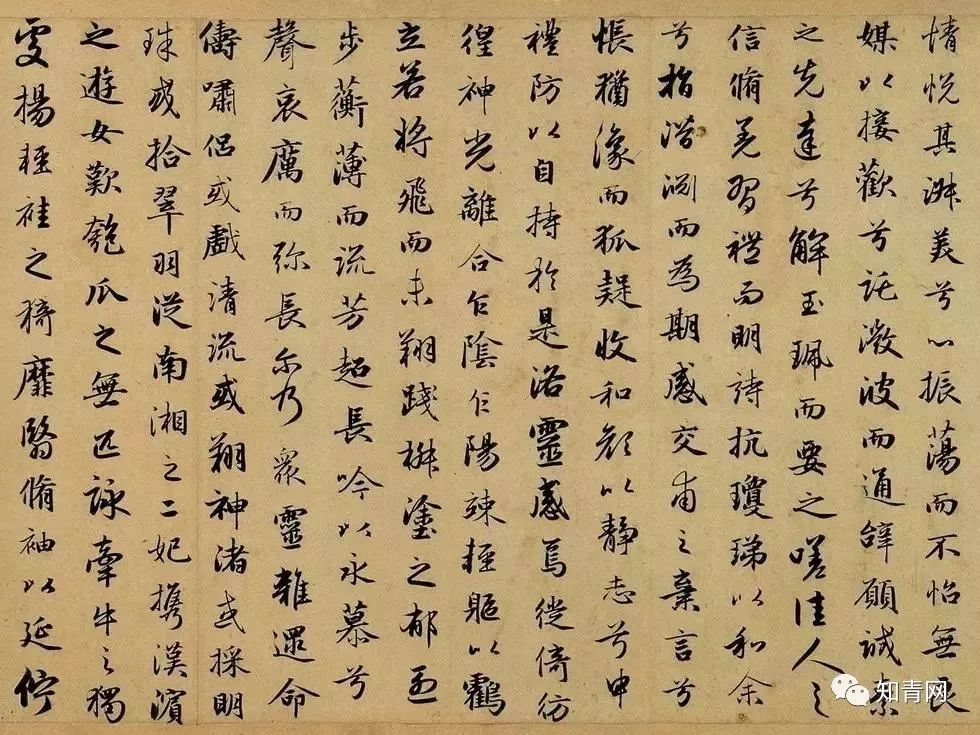 情悅其淑美兮心振蕩而不怡無良
媒以接歡兮託微波而通辭願誠素
之先達兮解玉珮而要之嗟佳人之
信脩羌習禮而明詩抗瓊珶以和余
兮指潛淵而為期感交甫之棄言兮
悵猶豫而狐疑收和顏以靜志兮申
禮防以自持於是洛靈感焉徙倚彷
徨神光離合乍陰乍陽竦輕軀以鶴
立若將飛而未翔踐椒塗之郁烈
步蘅薄而流芳超長吟以永慕兮
聲哀厲而彌長尔乃衆靈雜遝命
儔嘯侶或戲清流或翔神渚或採明
珠或拾翠羽從南湘之二妃攜漢濱
之遊女歎匏瓜之無匹詠牽牛之獨
處揚輕袿之猗靡翳脩袖以延佇
知青网